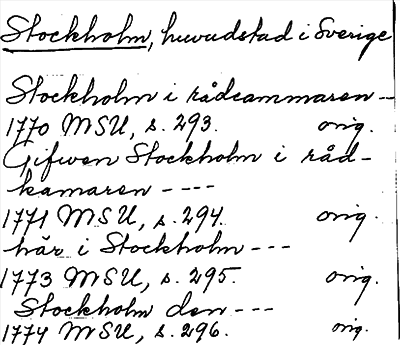 Stockholm, huvudstad i Sverige
Stockholm i rådcammaren -
1770 MSU, s. 293. orig.
Gifwen Stockholm i råd-
kamaren ----
1771 MSU, s. 294. orig.
här i Stockholm ---
1773 MSU, s. 295. orig.
Stockholm den ---
1774 MSU, s. 296. orig.